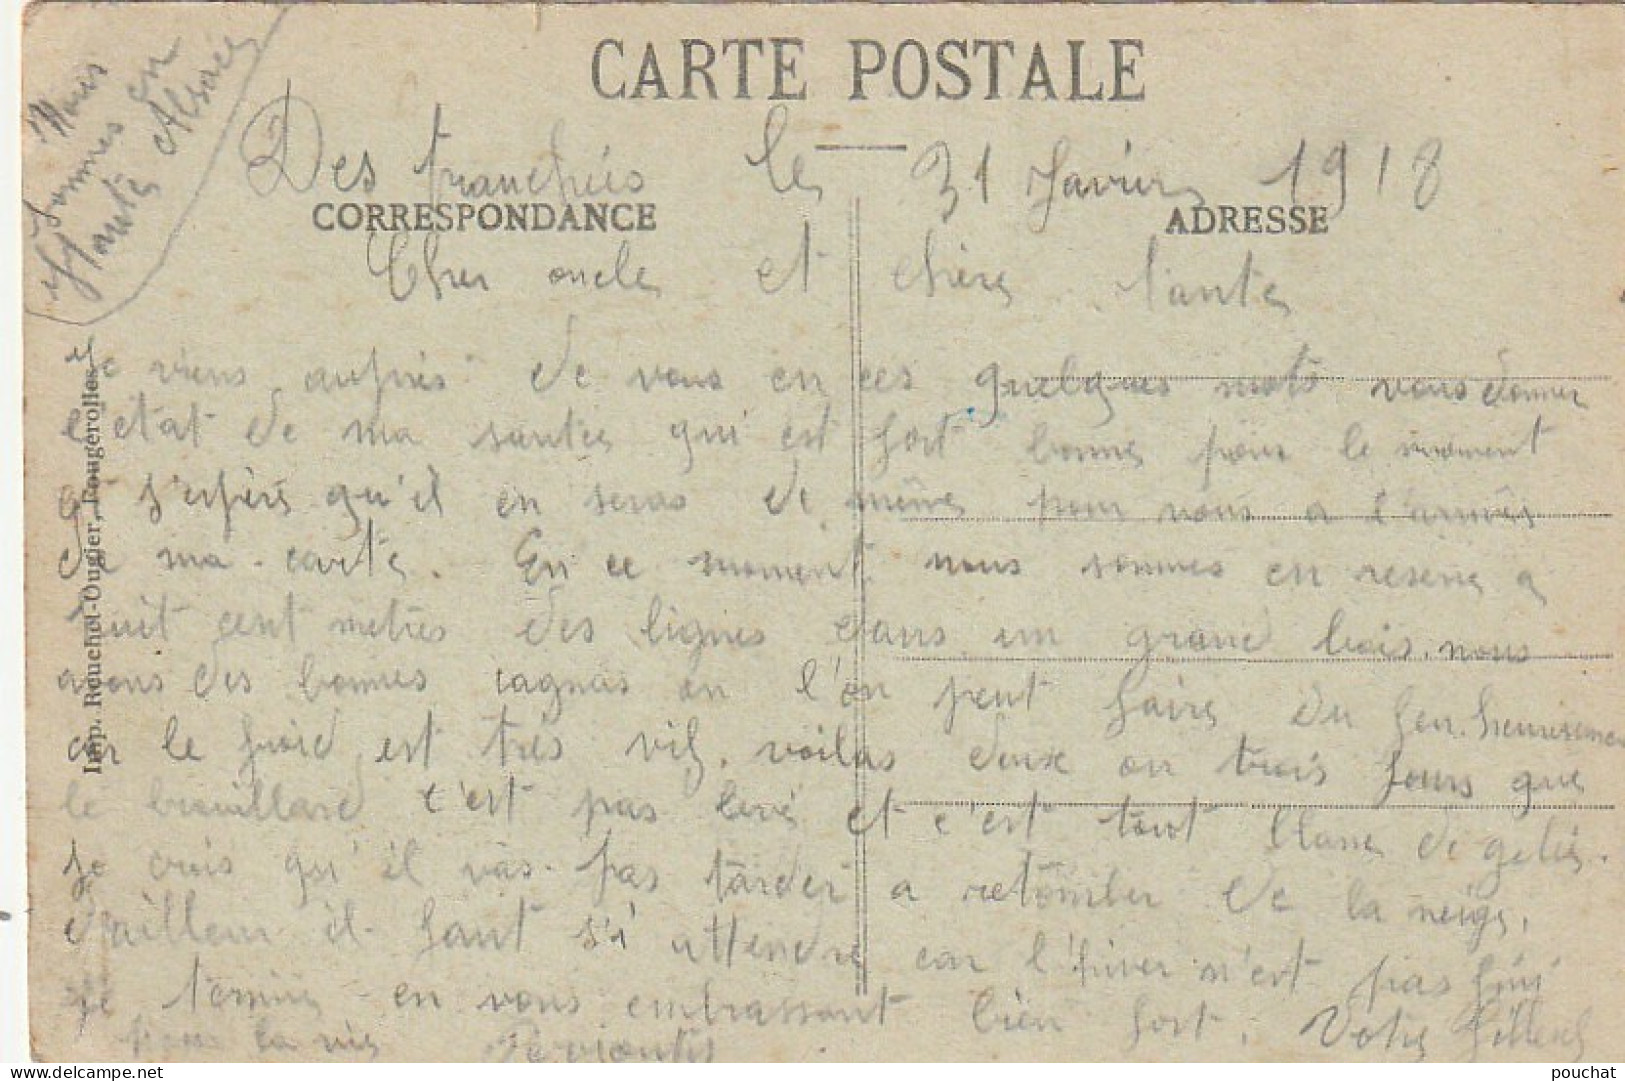 Nous
sommes en
Haute Alsace
CARTE POSTALE
Des tranchéés le 31 Javier 1918
CORRESPONDANCE
ADRESSE
Cher oncle et chère tante
Je viens auprès de vous en ces quelques mots vous donner
l'état de ma santée qui est fort bonne pour le moment
et j'espère qu'il en seras de même pour vous a l'arrivée
de ma carte. En ce moment nous sommes en reserve a
huit cent mètres des lignes dans un grand bois. nous
avons des bonnes cagnas ou l'on peut faire du feu. heureusement
car le froid est très vif. voilas deux ou trois jours que
le brouillard c'est pas levé et c'est tout blanc de gelée.
je crois qu'il vas pas tarder a retomber de la neige.
d'ailleur il faut s'i attendre car l'hiver n'est pas fini
je termine en vous embrassant bien fort. Votre filleul
pour la vie
Imp. Reuchet-Ougier, Fougerolles
pouchat